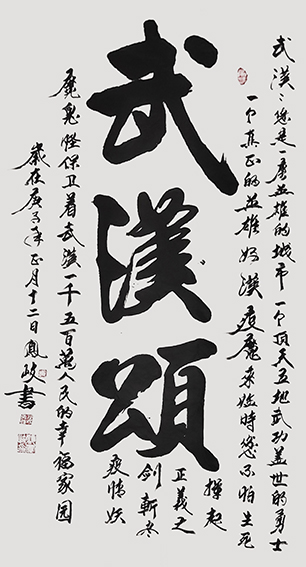 武漢頌
武漢:您是一座英雄的城市一个頂天立地武功盖世的勇士
一个真正的英雄好漢疫魔来临時您不怕生死
操起
正義之
剑斬尽
疫情妖
魔鬼怪保卫着武漢一千五百萬人民的幸福家园
歲在庚子年正月十二日鳳政書